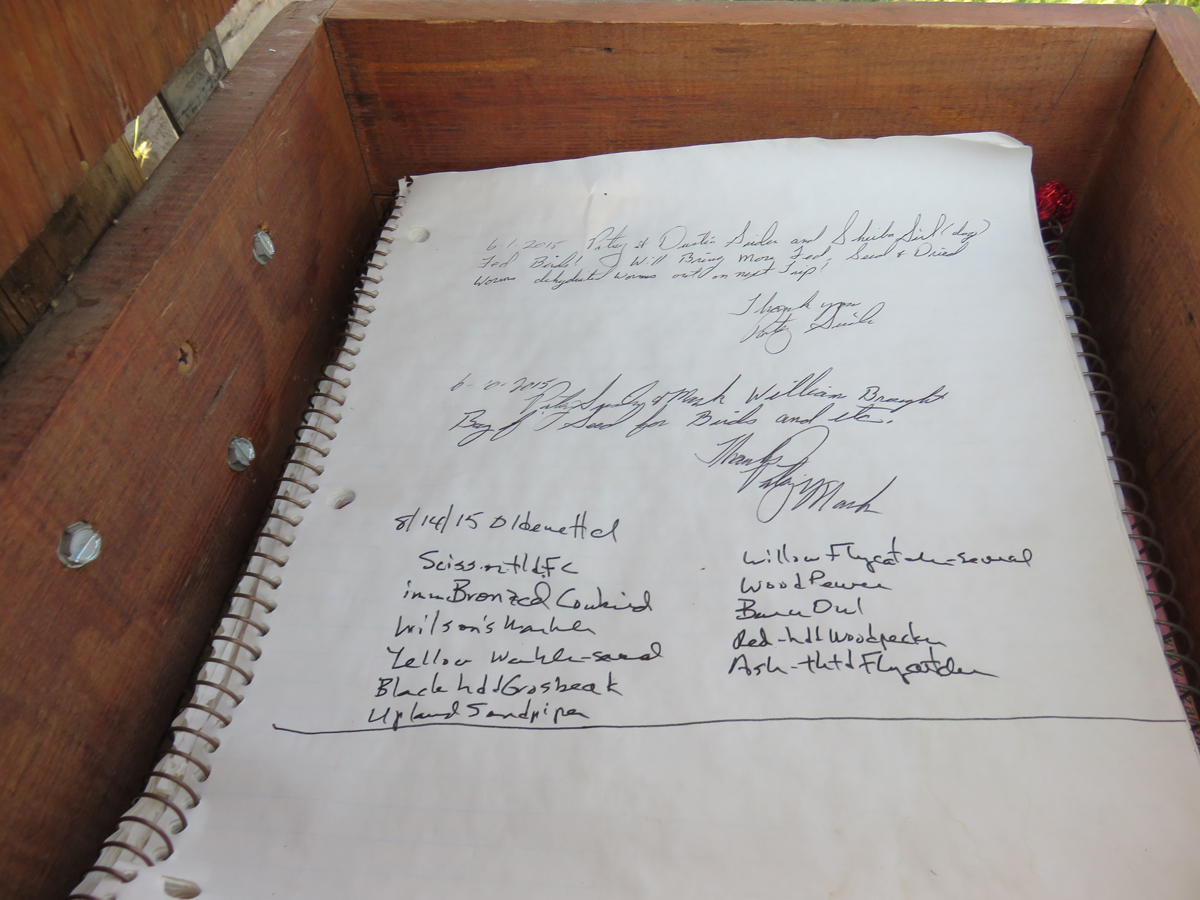 6-1-2015 Patsy & Dustin Seider and Sheiba Girl (dog)
Fed Birds! Will Bring More Fed, Seed & Dried
Worms dehydrated worms out on next Trip!
Thank you
Patsy
6- -2015
Patsy & Mark William Brought
Bag of Seed for Birds and etc.
Thanks
Patsy Mark
8/14/15
Scissor-tld.Fc
imm Bronzed Cowbird
Wilson's Warbler
Yellow Warbler-several
Black hdd Grosbeak
Upland Sandpiper
Willow Flycatcher-several
Wood Pewee
Barn Owl
Red-hdd Woodpecker
Ash-thtd Flycatcher